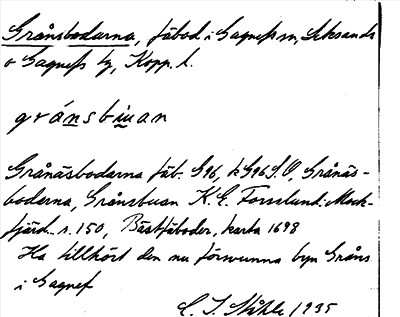 Grånsbodarna, fäbod i Gagnefs sn, Leksands
o Gagnefs tg, Kopp. l.
gránsbuan
Grånäsbodarna fäb. G96, k G96 S.O, Grånäs-
bodarna, Grånsbuan K.E. Forsslund: Mock-
fjärd s. 150, Bästfäboder, karta 1698
Ha tillhört den nu försvunna byn Gråns
i Gagnef
C. I. Ståhle 1935